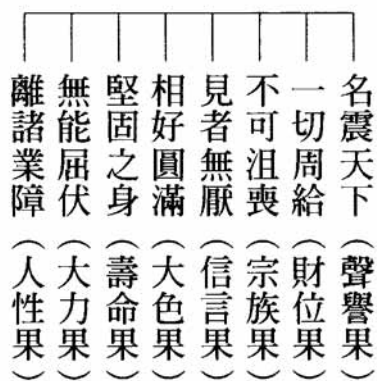 名震天下（聲譽果）
一切周給（財位果）
不可沮喪（宗族果）
見者無厭（信言果）
相好圓滿（大色果）
堅固之身（壽命果）
無能屈伏（大力果）
離諸業障（人性果）